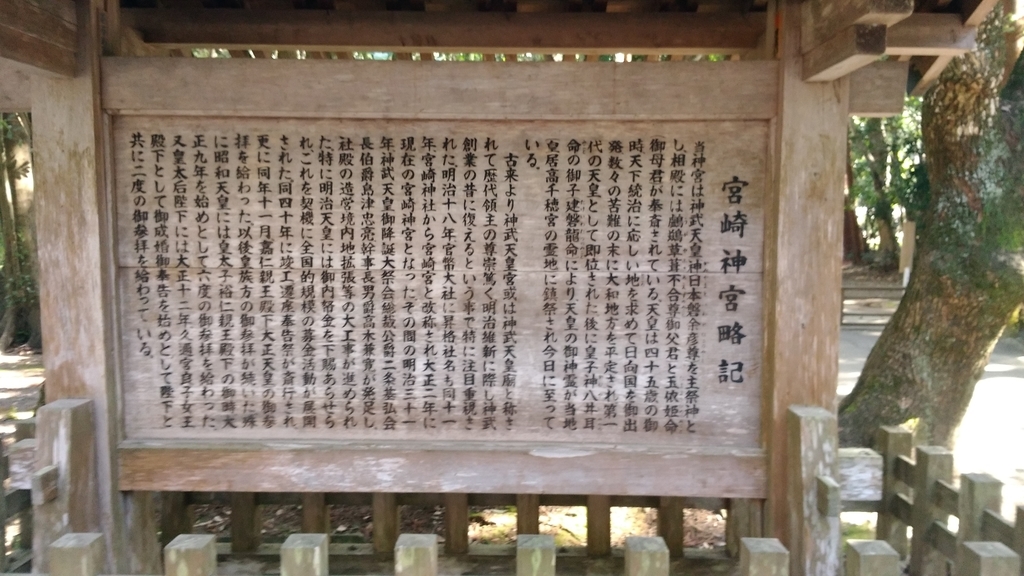 宮崎神宮略記
当神宮は神武天皇神日本磐余彦尊を主祭神と
し相殿には鸕鷀草葺不合尊御父君と玉依姫命
御母君が奉斎されている天皇は四十五歳の御
時天下統治に応しい地を求めて日向国を御出
発数々の苦難の末に大和地方を平定され第一
代の天皇として即位された後に皇子神八井耳
命の御子建磐龍命により天皇の御神霊が当地
皇居高千穂宮の霊地に鎮祭され今日に至って
いる。
古来より神武天皇宮或は神武天皇廟と称さ
れて歴代領主の尊崇篤く明治維新に際し神武
創業の昔に復えるという事で特に注目重視さ
れた明治十八年官幣大社に昇格社名も同十一
年宮崎神社から宮崎宮と改称され大正二年に
現在の宮崎神宮となったその間の明治三十一
年神武天皇御降誕大祭会総裁公爵二条基弘会
長伯爵島津忠亮幹事長男爵高木兼寛が発足し
社殿の造営境内地拡張等の大工事が進められ
た特に明治天皇には御内帑金を下賜あらせら
れこれを契機に全国的規模の募金活動が展開
された同四十年に竣工遷座奉告祭が斎行され
更に同年十一月嘉仁親王殿下大正天皇の御参
拝を給わった以後皇族方の御参拝が続いた殊
に昭和天皇には皇太子裕仁親王殿下の御時大
正九年を始めとして六度の御参拝を給わった
又皇太后陛下には大正十二年久邇宮良子女王
殿下として御成婚御奉告を始めとして陛下と
共に二度の御参拝を給わっている。